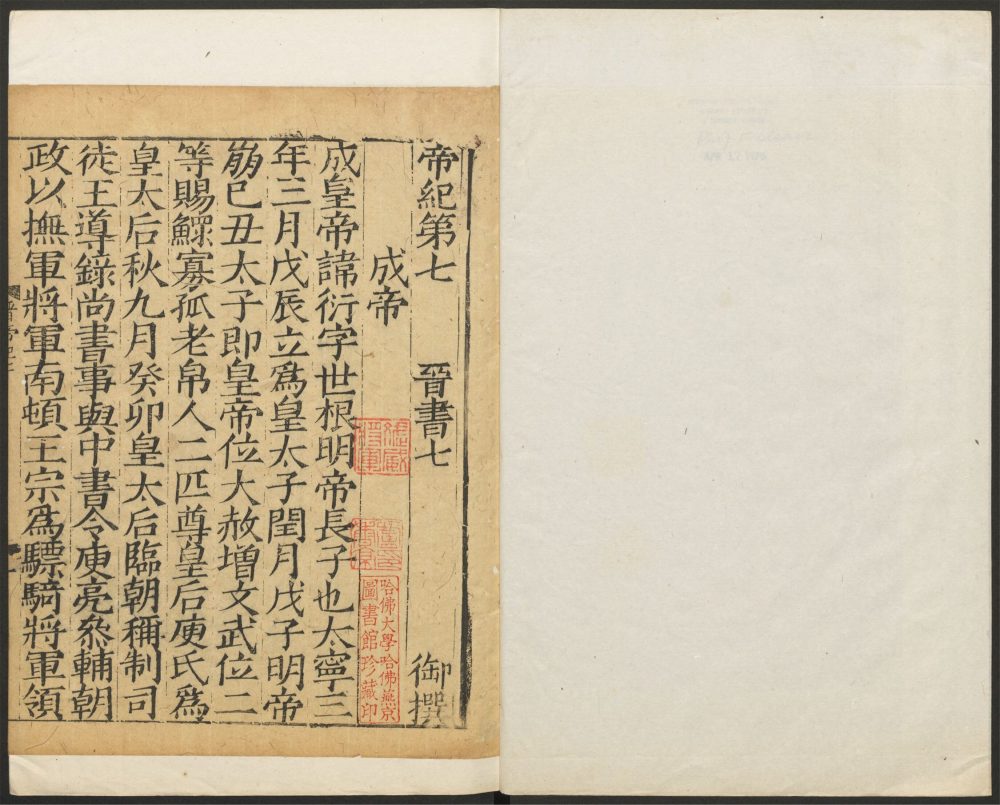 帝紀第七　晉書七　御撰
成帝
成皇帝諱衍字世根明帝長子也太寧三
年三月戊辰立爲皇太子閏月戊子明帝
崩己丑太子即皇帝位大赦增文武位二
等賜鰥寡孤老帛人二匹尊皇后庾氏爲
皇太后秋九月癸卯皇太后臨朝稱制司
徒王導錄尚書事與中書令庾亮參輔朝
政以撫軍將軍南頓王宗爲驃騎將軍領
哈佛大學哈佛燕京
圖書館珍藏印